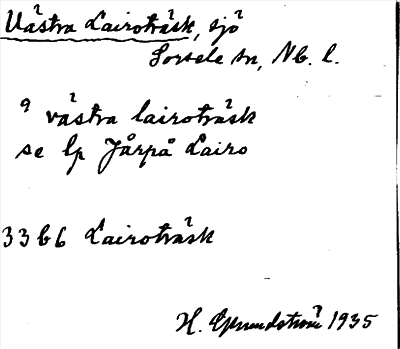 Västra Lairoträsk, sjö
Sorsele sn, Vb. l.
9 västra lairoträsk
se lp Jårpå Lairo
33 b 6 Lairoträsk
H. 1935